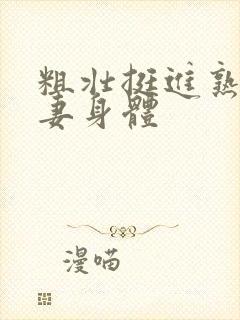 粗壯挺進熟
妻身體
漫喵